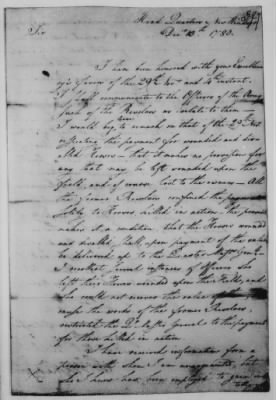 Head Quarters New Windsor
Decr 13th 1780.
Sir
I have been honored with your Excellency's
favors of the 29th Ult and instant.
I shall communicate to the Officers of the Army
such of the Resolves as relate to them
I would beg to remark on that of the
respecting the payment for wounded and
Horses that it makes no provision for
any that may be left wounded upon the
field, and of course lost to the owners All
the former Resolves confined the payment
solely to Horses killed in action. the present
makes it a condition, that the Horses wounded
and disabled, shall, upon payment of the value
be delivered up to the Quarter Master General
I recollect several instances of Officers who
left their Horses wounded upon the Field, and
who could not recover the value
the words of the former Resolves,
restricted the Qr Master General to the payment
for those killed in action
I have received information from a
person with whom I am unacquainted, but
who I have been employed